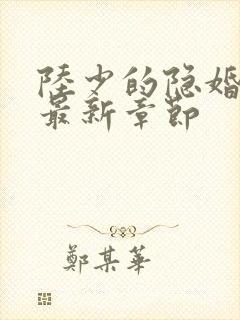 陸少的隐婚
最新章節
鄭某華